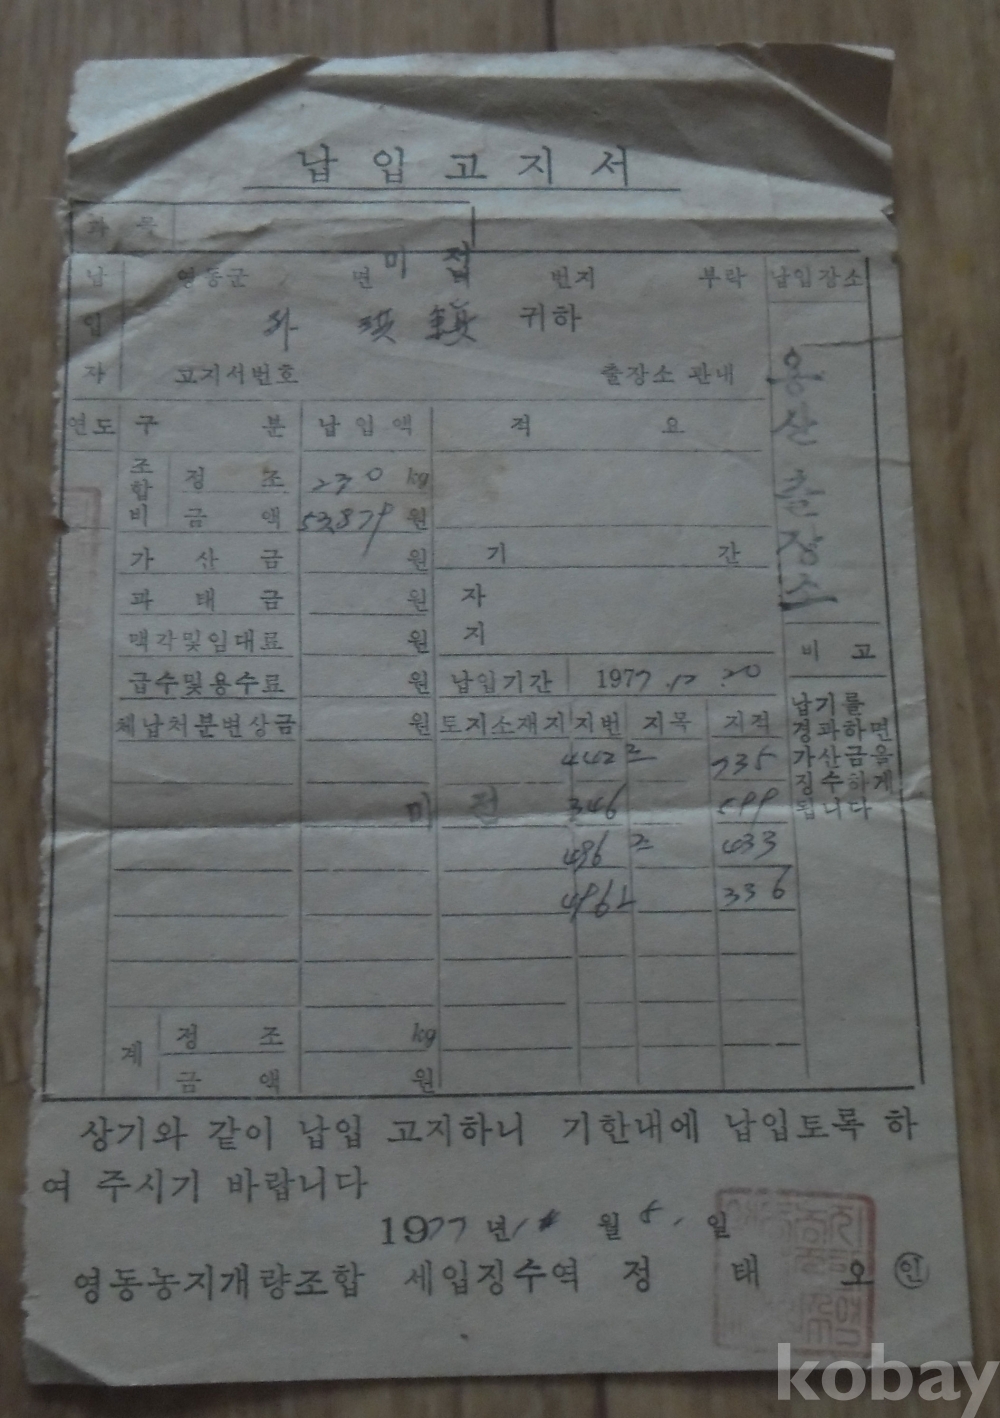 납입고지서
과목
납 영동군 면 미전 번지 부락 납입장소
입 귀하
자 고지서번호 출장소 관내
용산출장소
연도 구 분 납입액 적 요
조합비 정 조 230 kg
금 액 53,879 원
가 산 금 원 기 간
과 태 금 원 자
매각및임대료 원 지
비 고
급수및용수료 원 납입기간 1977. 12. 20
체납처분변상금 원 토지소재지 지번 지목 지적
납기를
경과하면
가산금을
징수하게
됩니다
442 735
미 전 346
496 433
336
계 정 조 kg
금 액 원
상기와 같이 납입 고지하니 기한내에 납입토록 하
여 주시기 바랍니다
1977년 월 8. 일
영동농지개량조합 세입징수역 정 태 오 인
kobay